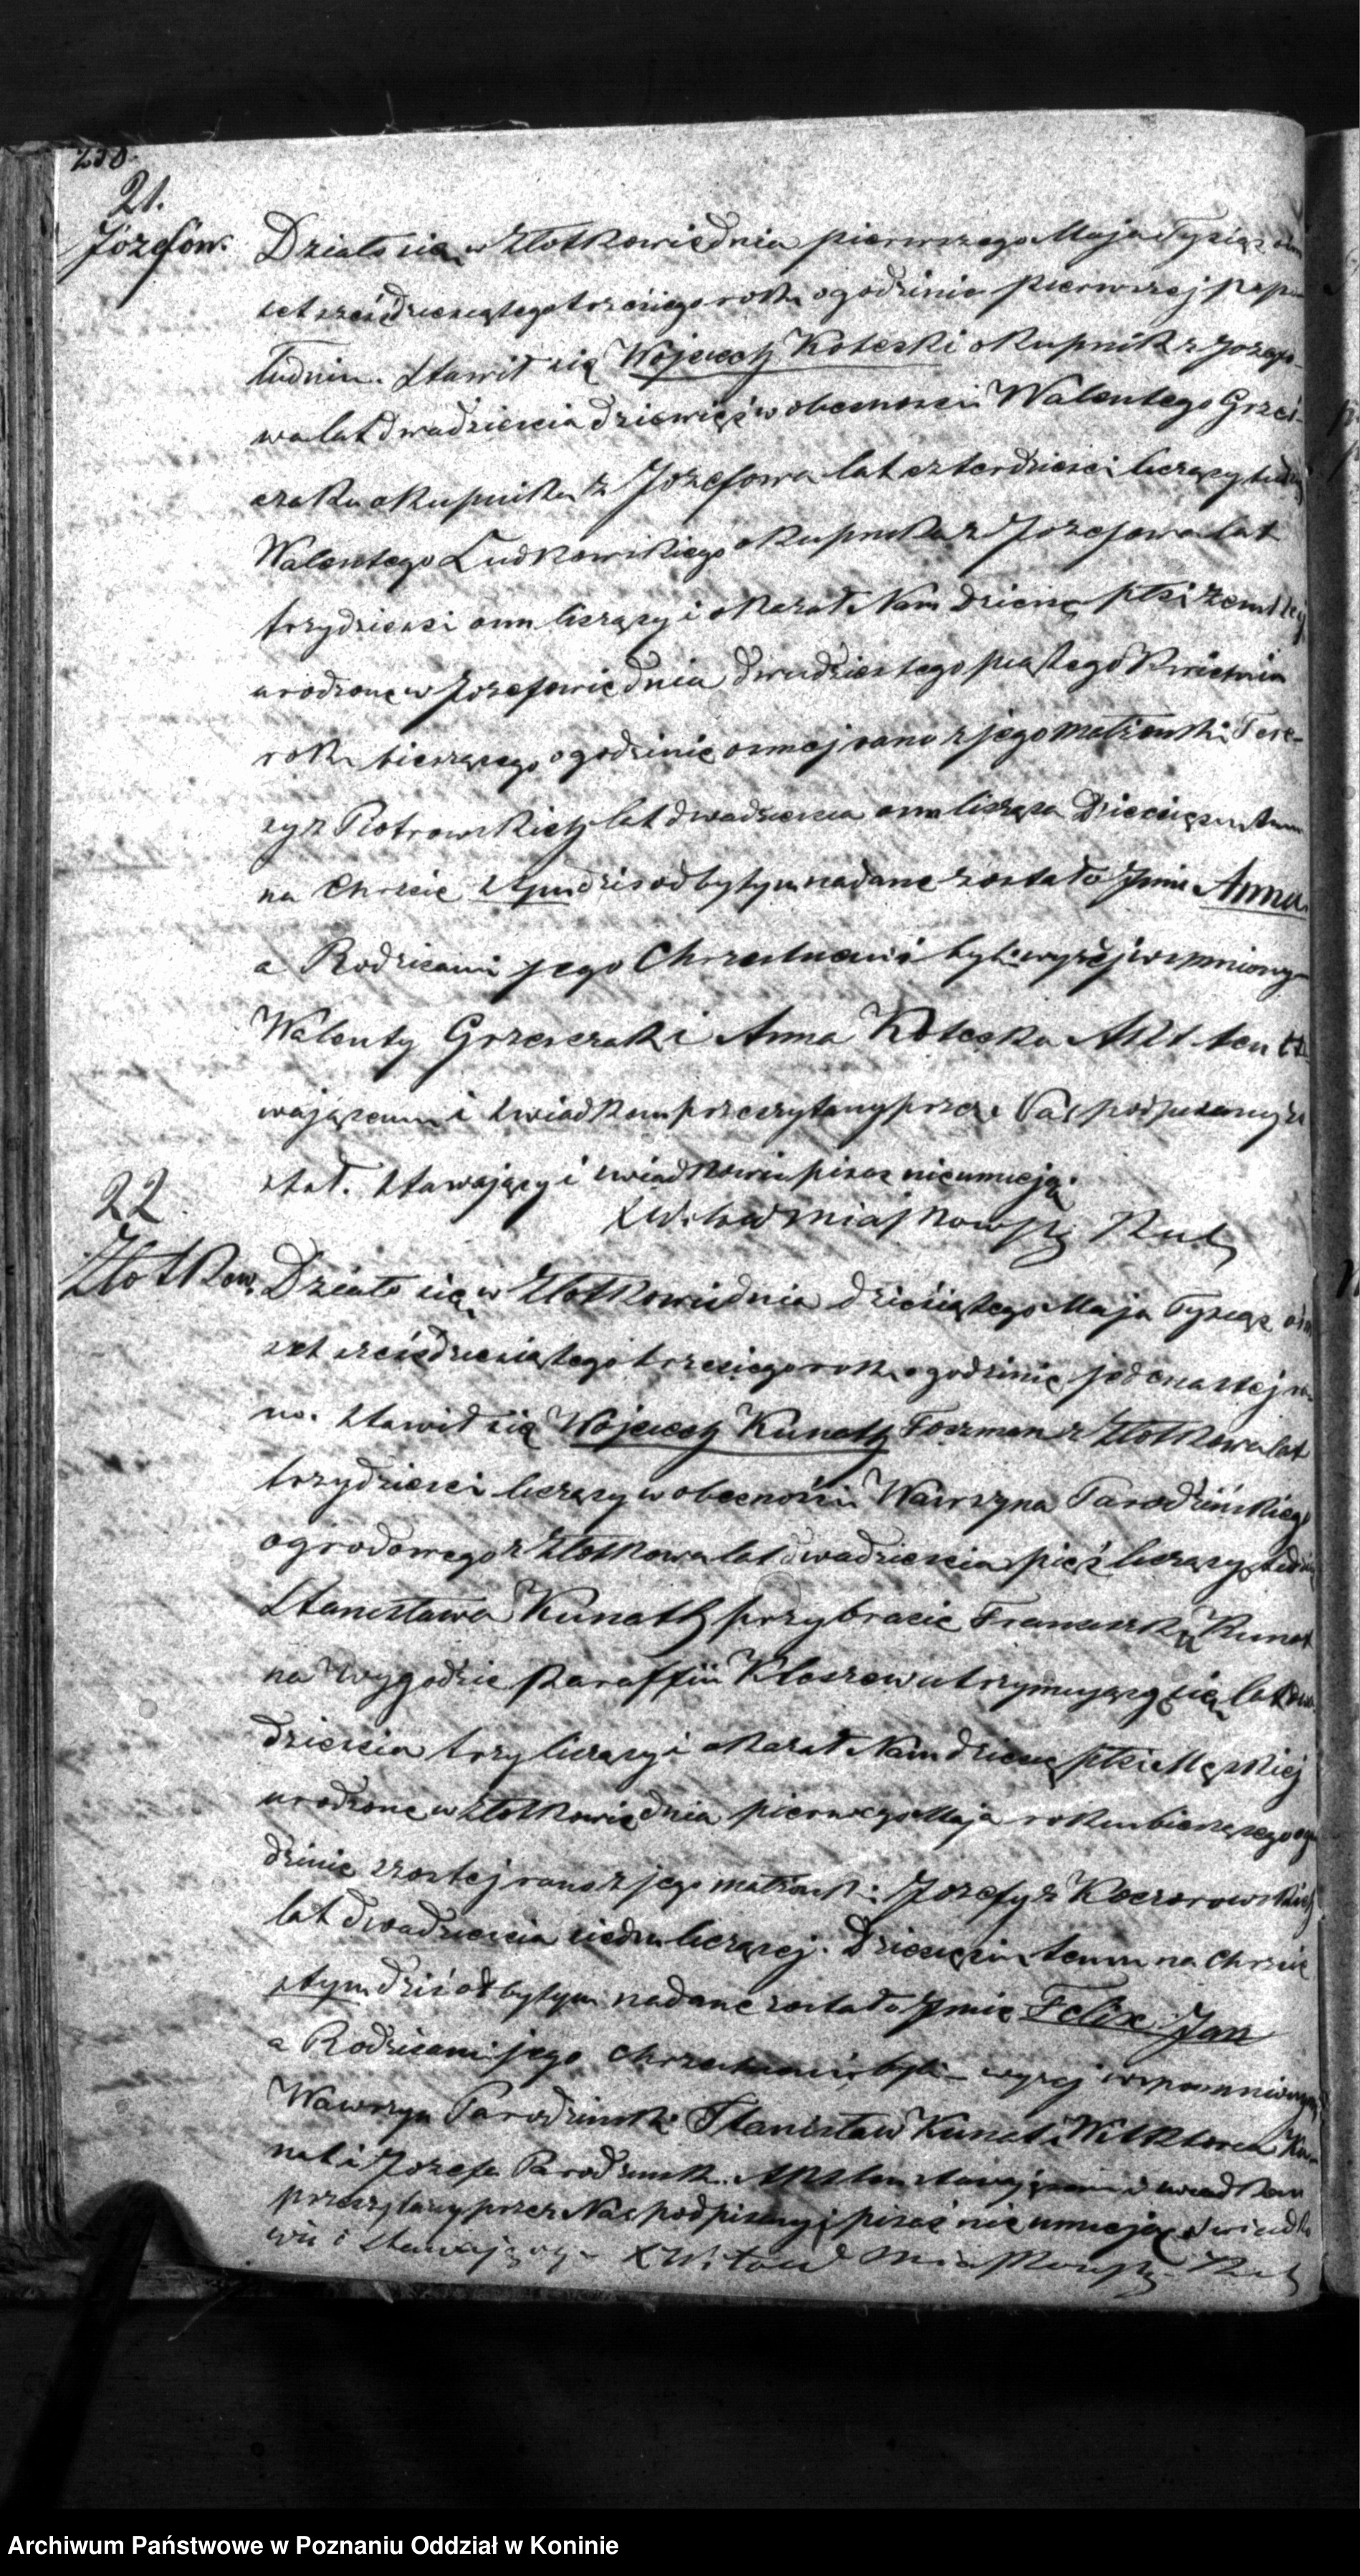 250.
21.
Józefów.
Działo się w Złotkowie dnia pierwszego Maja Tysiąc ośm
set sześćdziesiątego trzeciego roku o godzinie pierwszej popo
łudniu. Stawił się Wojciech Koteski okupnik z Józefo-
wa lat dwadzieścia dziewięć w obecności Walentego Grześ-
czaka okupnika z Józefowa lat czterdzieści liczący tudzi
Walentego Ludkowskiego okupnika z Józefowa lat
trzydzieści ośm liczący i okazał Nam dziecię płci żeńskiej
urodzone w Józefowie dnia dwudziestego piątego Kwietnia
roku bieżącego o godzinie osmej rano z jego małżonki Tere-
zy z Piotrowskich lat dwadzieścia ośm licząca Dziecięciu temu
na Chrzcie Stym dziś odbytym nadane zostało Jmie Anna
a Rodzicami jego Chrzestnemi byli wyżej wspmniony
Walenty Grzesczak i Anna Koteska Akt ten sta
wającemu i świadkom przeczytany przez Nas podpisany zo
stał. Stawający i świadkowie pisać nieumieją.
X Witold Miaskowski
22
Złotków.
Działo się w Złotkowie dnia dziesiątego Maja Tysiąc ośm
set sześćdziesiątego trzeciego roku o godzinie jedenastej ra-
no. Stawił się Wojciech Kunath Forzman z Złotkowa lat
trzydzieści liczący w obecności Wawrzyna Parodzińskiego
ogrodowego z Złotkowa lat dwadzieścia pięć liczący tudzi
Stanisława Kunath przy bracie Franciszku Kunat
na Wygodzie Paraffii Kleszew utrzymujący się lat dwa
dzieścia trzy liczący i okazał Nam dziecię płci Męskiej
urodzone w Złotkowie dnia pierwszego Maja roku bieżącego ogo
dzinie szostej rano z jego małżonki Jozefy z Kaczorowskich
lat dwadzieścia siedm liczącej. Dziecięciu temu na chrzcie
stym dziś odbytym nadane zostało Jmie Felix Jan
a Rodzicami jego chrzestnemi byli wyżej wspomniony
Wawrzyn Parodzinski Stanisław Kunat i Wiktorea Ku-
nat i Jozefa Parodzinsk. Akt ten stawającemu i świadkom
przeczytany przez Nas podpisany pisać nie umieją świadko
wie i stawający X Witold Miaskowski
Archiwum Państwowe w Poznaniu Oddział w Koninie